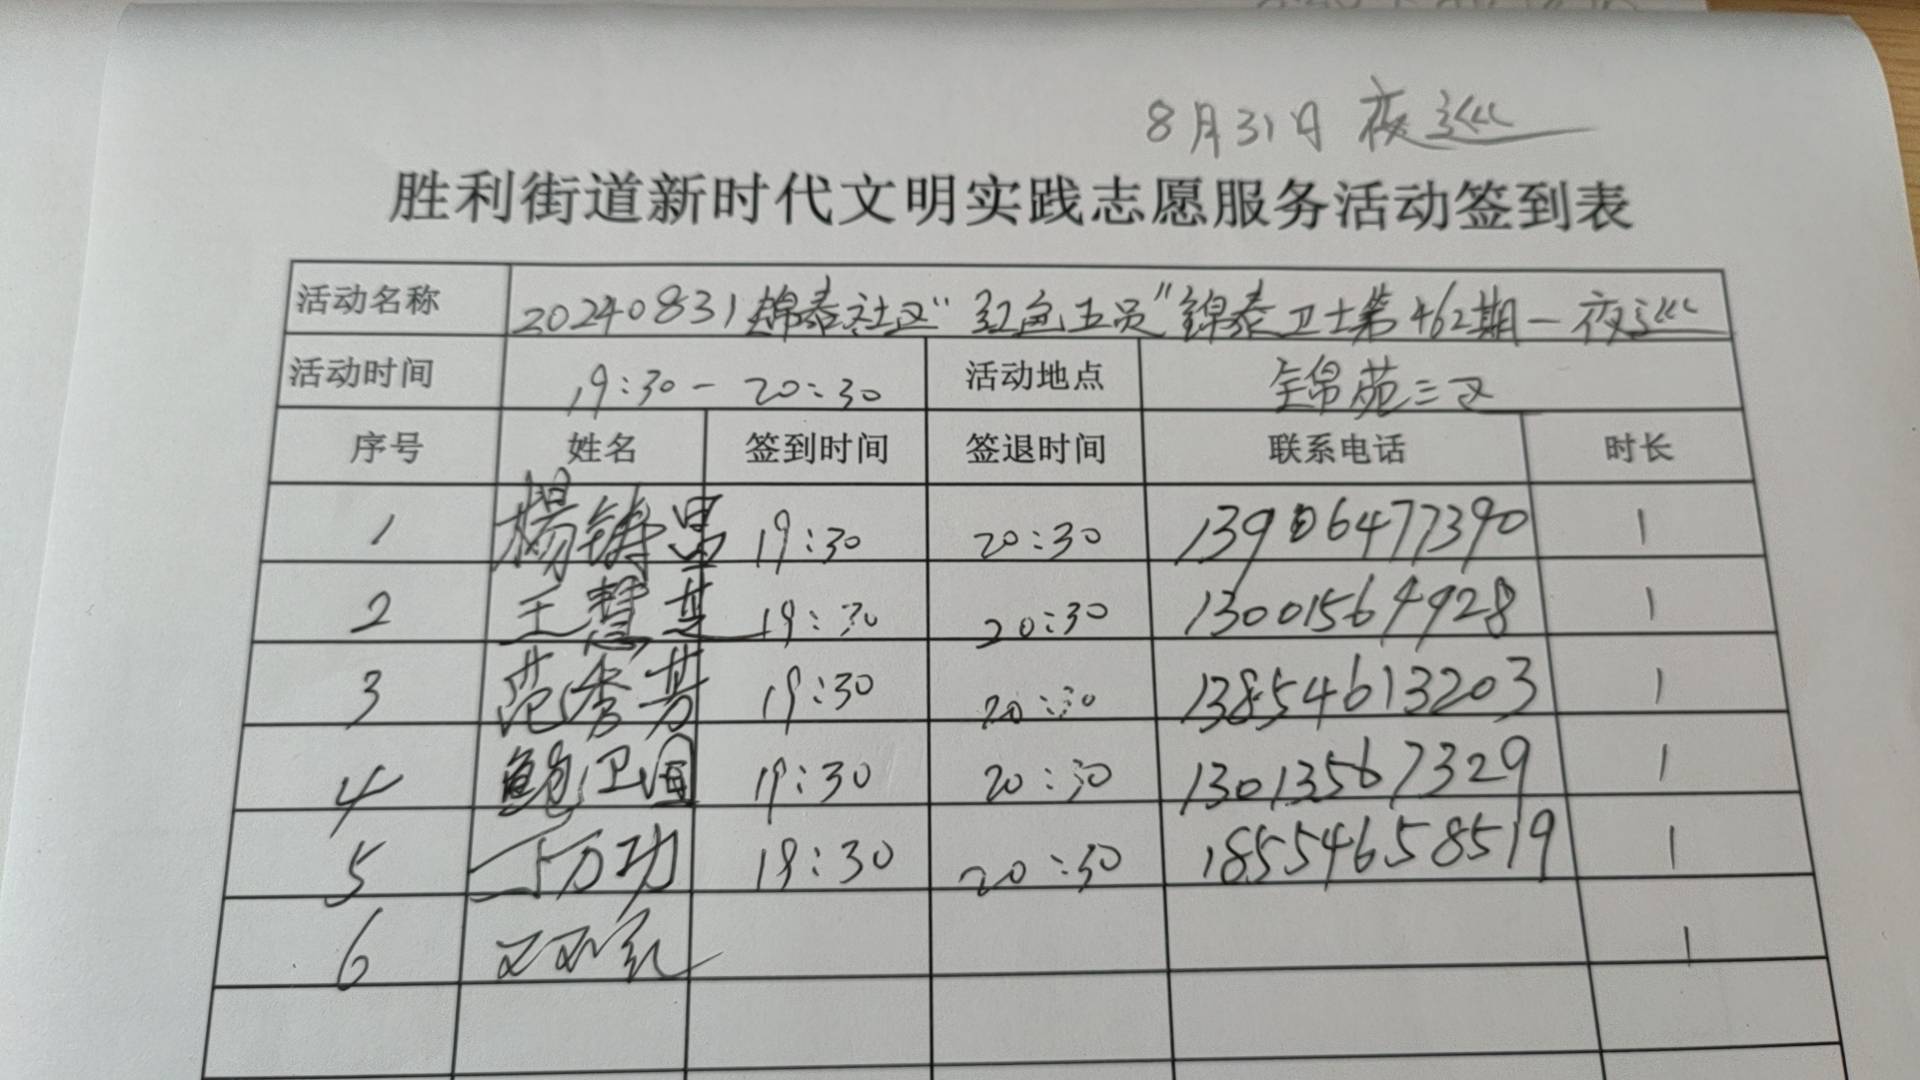 8月31日 夜巡
胜利街道新时代文明实践志愿服务活动签到表
活动名称 20240831锦泰社区“红色五员”锦泰卫士第462期一夜巡
活动时间 19:30-20:30 活动地点 锦苑三区
序号 姓名 签到时间 签退时间 联系电话 时长
1 杨铸 19:30 20:30 13906477390 1
2 王慧芝 19:30 20:30 13001564928 1
3 范秀芳 19:30 20:30 13854613203 1
4 鲍卫国 19:30 20:30 13013567329 1
5 丁万功 19:30 20:30 18554658519 1
6 1